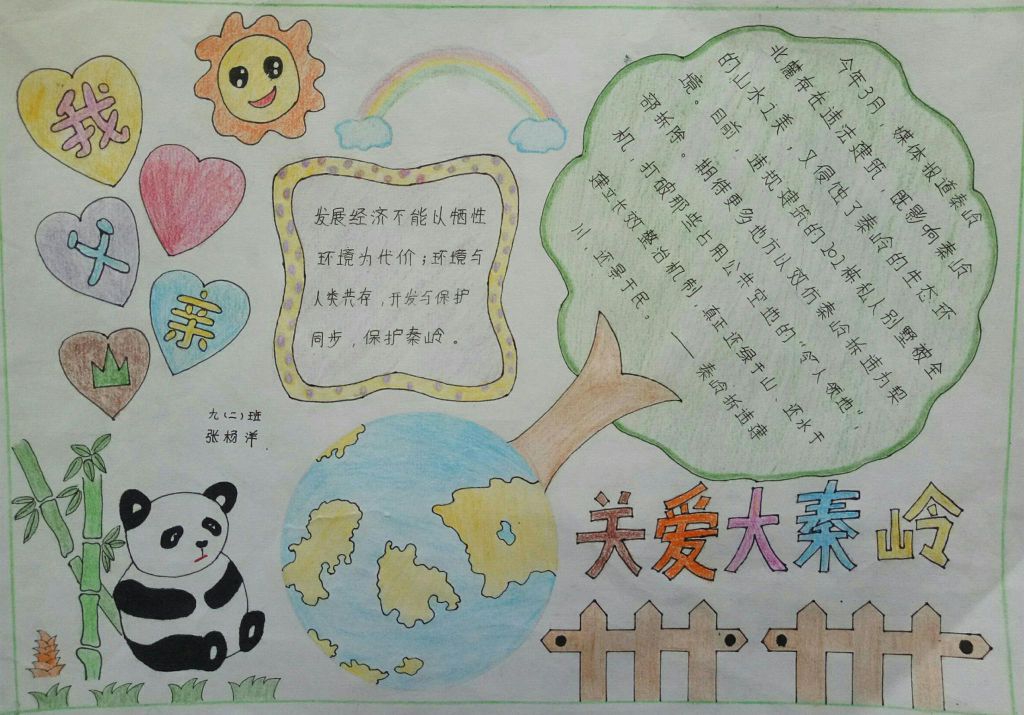 我
父
亲
山
发展经济不能以牺牲
环境为代价；环境与
人类共存，开发与保护
同步，保护秦岭。
九（二）班
张杨洋
今年3月，媒体报道秦岭
北麓存在违法建筑，既影响秦岭
的山水之美，又侵蚀了秦岭的生态环
境。目前，违规建筑的202栋私人别墅被全
部拆除。期待更多地方以效仿秦岭拆违为契
机，打破那些占用公共空地的“令人领地”，
建立长效整治机制，真正还绿于山、还水于
川、还景于民。
——秦岭拆违建
关爱大秦岭